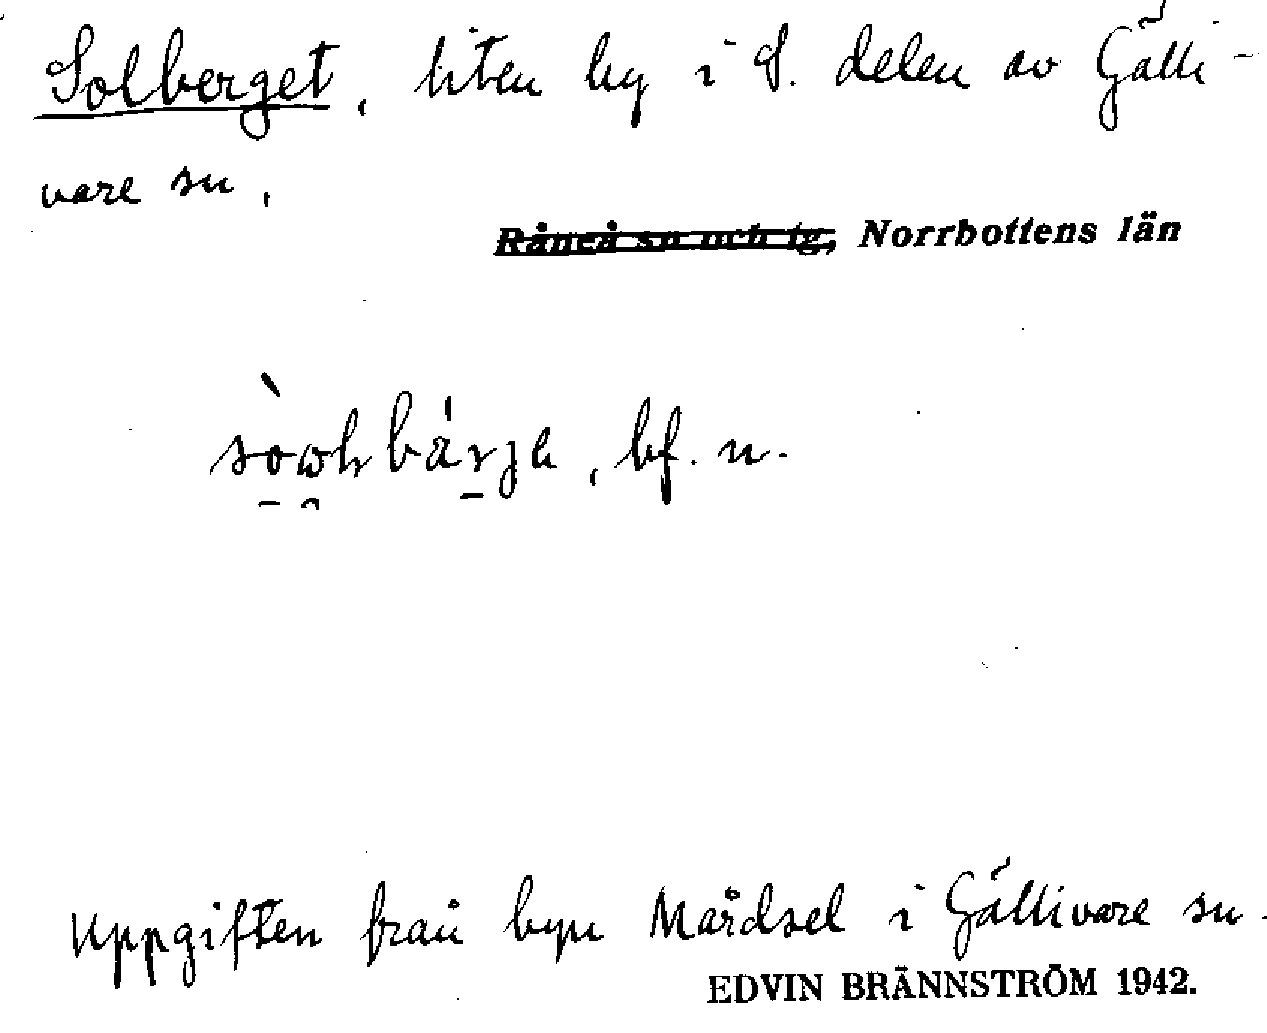 Solberget, liten by i S. delen av Gälli-
vare sn.
Råneå sn och tg, Norrbottens län
bf. n.
Uppgiften från byn Mårdsel i Gällivare sn.
EDVIN BRÄNNSTRÖM 1942.